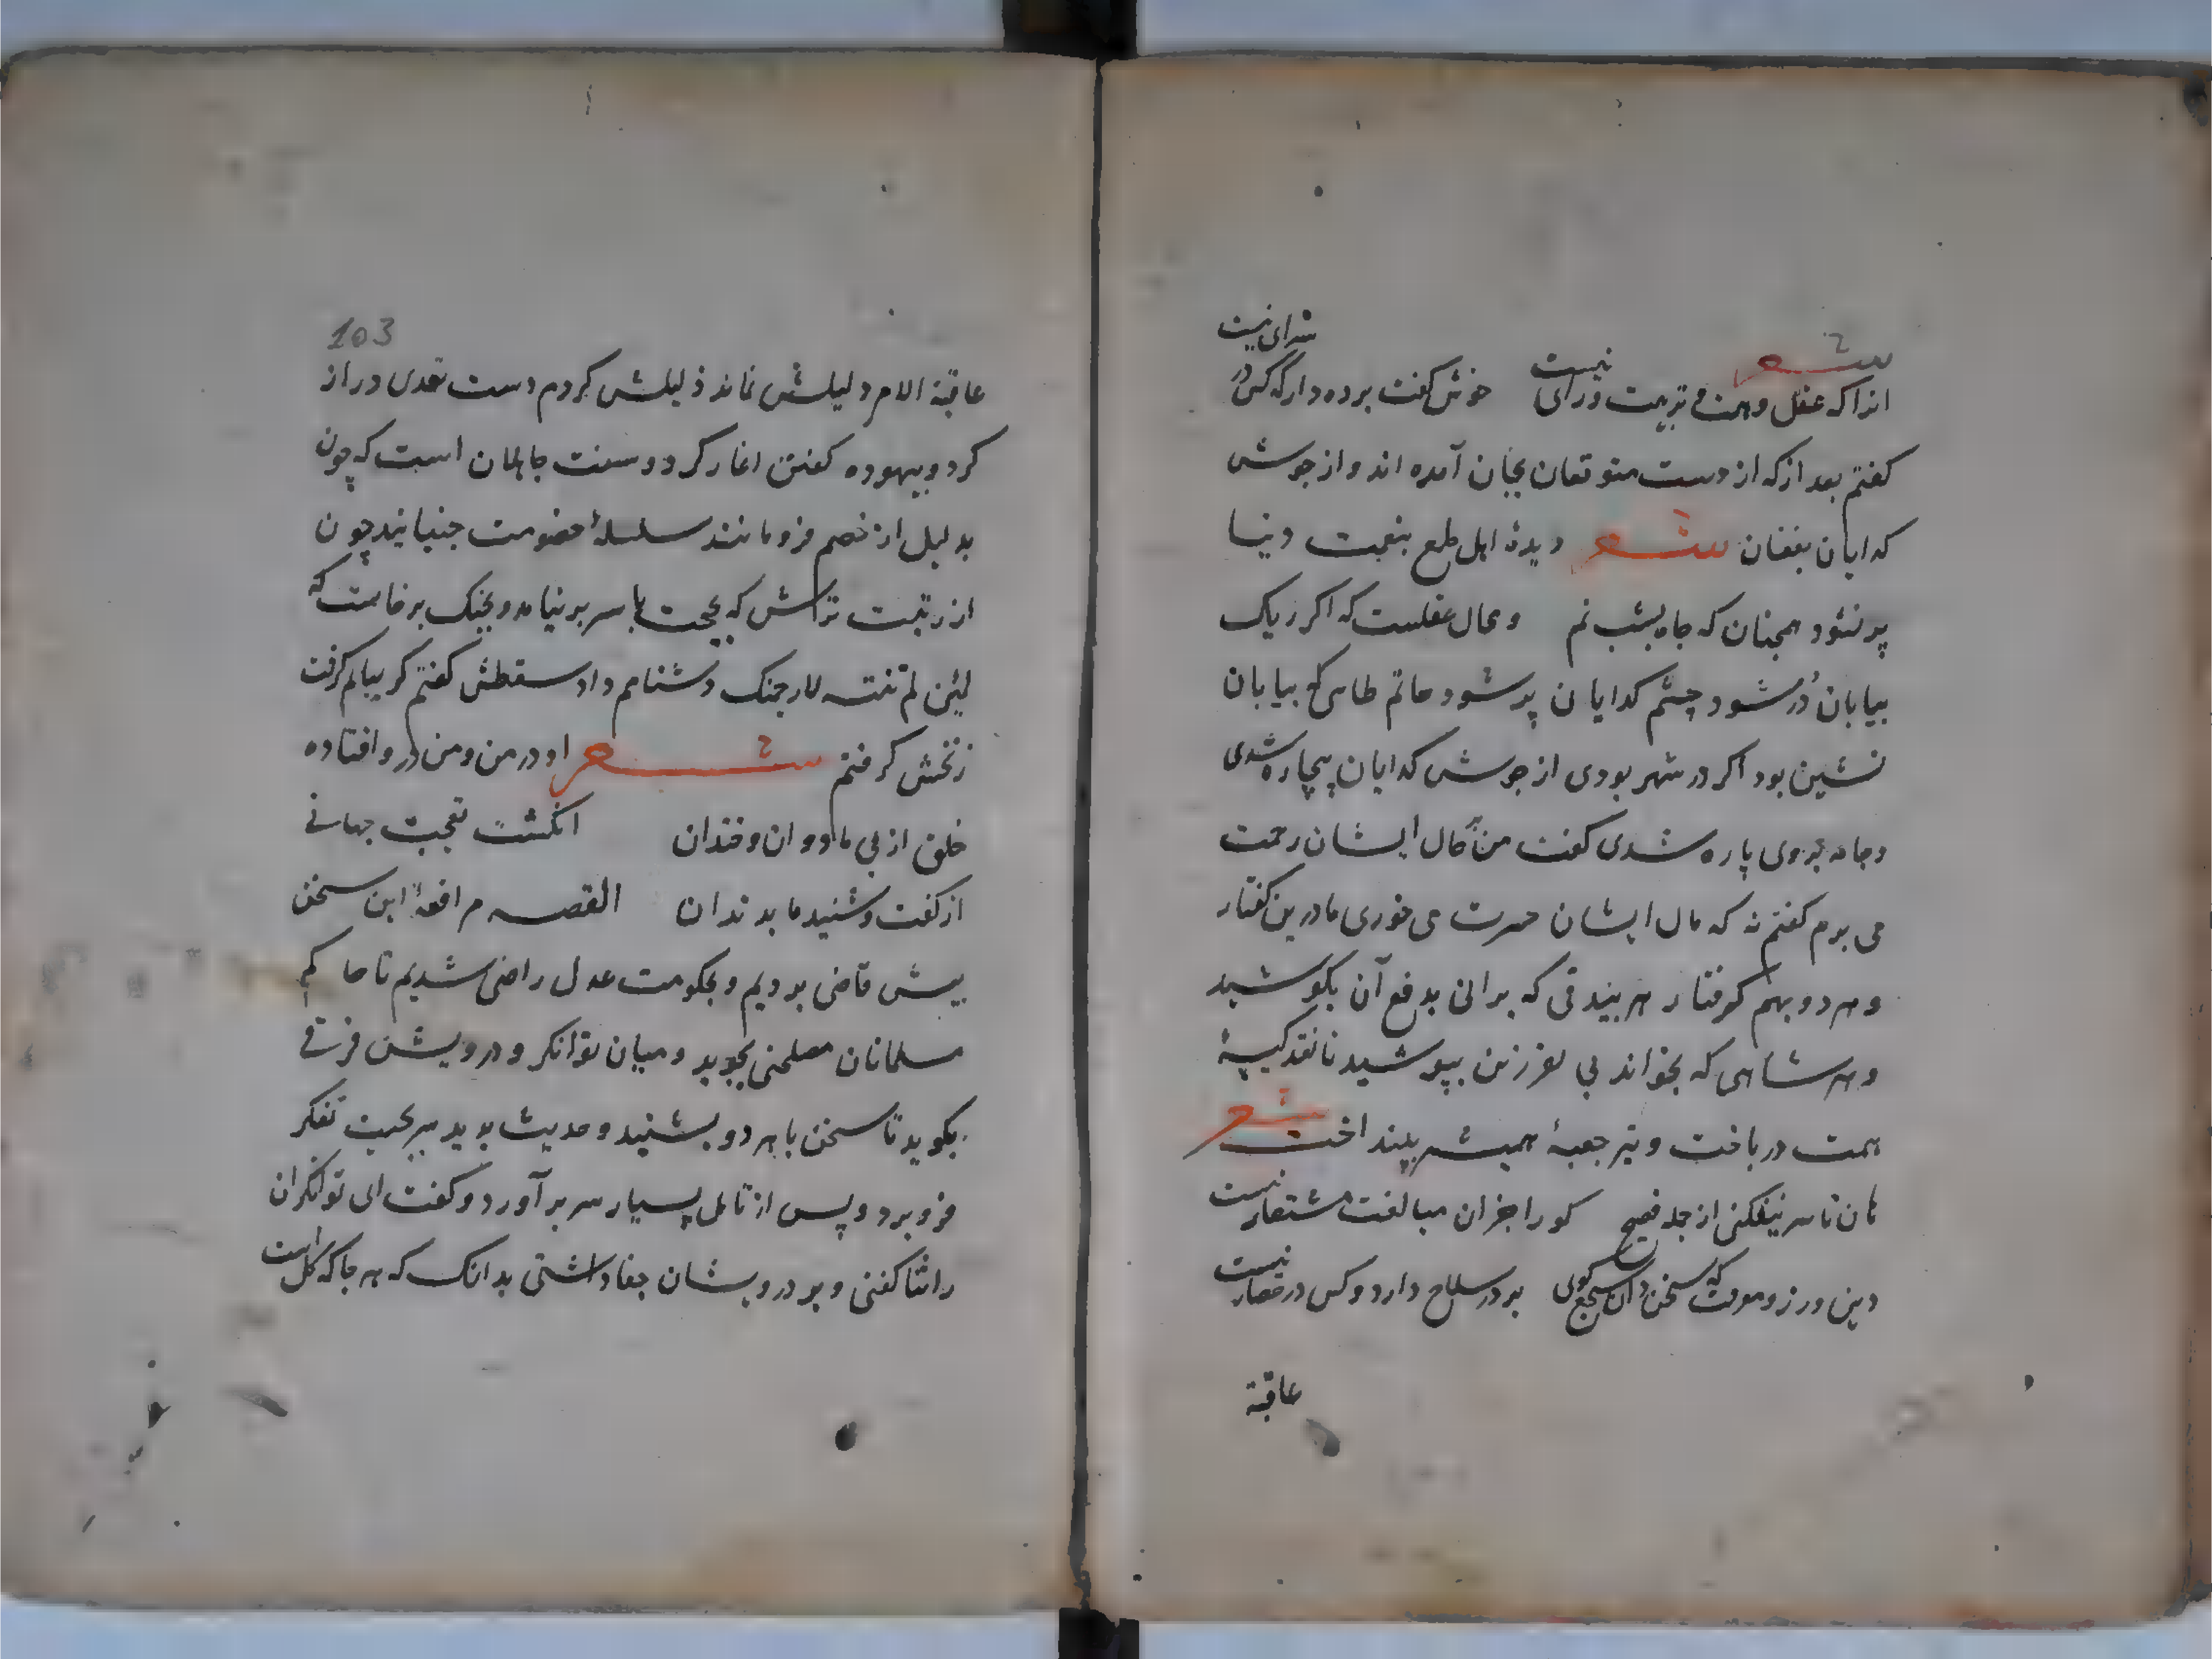 شعر
انرا که عقل و همت و تربیت ورای نیست خوش گفت برده دار که کس در سرای نیست
کفتم بعد از که از دست متوقعان بجان آمده اند و از جوش
کدایان بفغان شعر دیدهٔ اهل طمع بنعمت دنیا
پر نشود همچنان که چاه بشب نم و محال عقلست که اکر ریک
بیابان دُر شود چشم کدایان پر شود حاتم طاسی که بیابان
نشین بود اکر در شهر بودی از جوش کدایان بیچاره شدی
و جامه بروی پاره شدی کفت من بر حال ایشان رحمت
می برم کفتم نه که مال ایشان حسرت می خوری ما درین کفتار
و هر دو بهم کرفتار هر بیندقی که براندی بدفع آن بکوشید
و هر شاهی که بخواند بی بفرزین بپوشید تا نقد کیسهٔ
همت درباخت و تیر جعبهٔ همیشه بینداخت شعر
هان تا سپر نیفکنی از حمله فصیح کورا جز ان مبالغت مستعار نیست
دین ورز و معرفت که سخن دان سجع کوی بر در سلاح دارد و کس در حصار نیست
عاقبة
103
عاقبة الامر دلیلش نماند ذلیلش کردم دست تعدی دراز
کرد و بیهوده کفتن اغاز کرد و سنت جاهلان است که چون
بدلیل از خصم فرو مانند سلسلهٔ خصومت جنبانند چون
ازر بت تراش که بحجت با پسر بر نیامد و بجنک برخاست که
لئن لم تنته لارجمنک دشنامم داد سقطش کفتم کریبانم کرفت
زنخش کرفتم شعر او در من و من در و افتاده
خلق از پی ما دوان و خندان انکشت تعجب جهانے
از کفت و شنید ما بدندان القصه مرافعهٔ این سخن
پیش قاضی بردیم و بحکومت عدل راضی شدیم تا حاکم
مسلمانان مصلحتی بجوید و میان توانکر و درویش فرقے
بکوید تا سخن با هر دو بشنید و حدیث بدید سر بجیب تفکر
فرو برد و پس از تامل بسیار سر بر آورد و کفت ای توانکران
را ثنا کفتی و بر درویشان جفا داشتی بدانک که هر جا که کل است